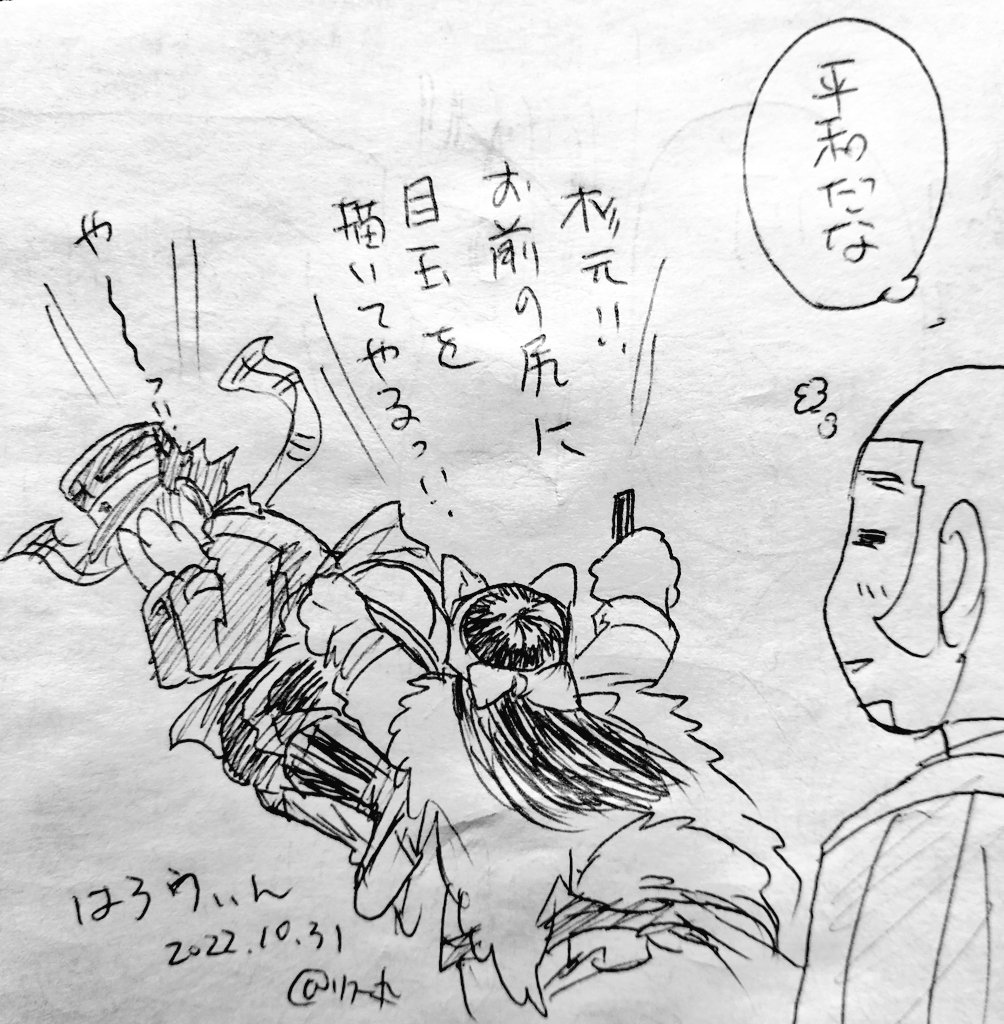 平和だな
杉元!!
お前の尻に
目玉を
描いてやるっ!!
や〜っ!!
はろうぃん
2022.10.31